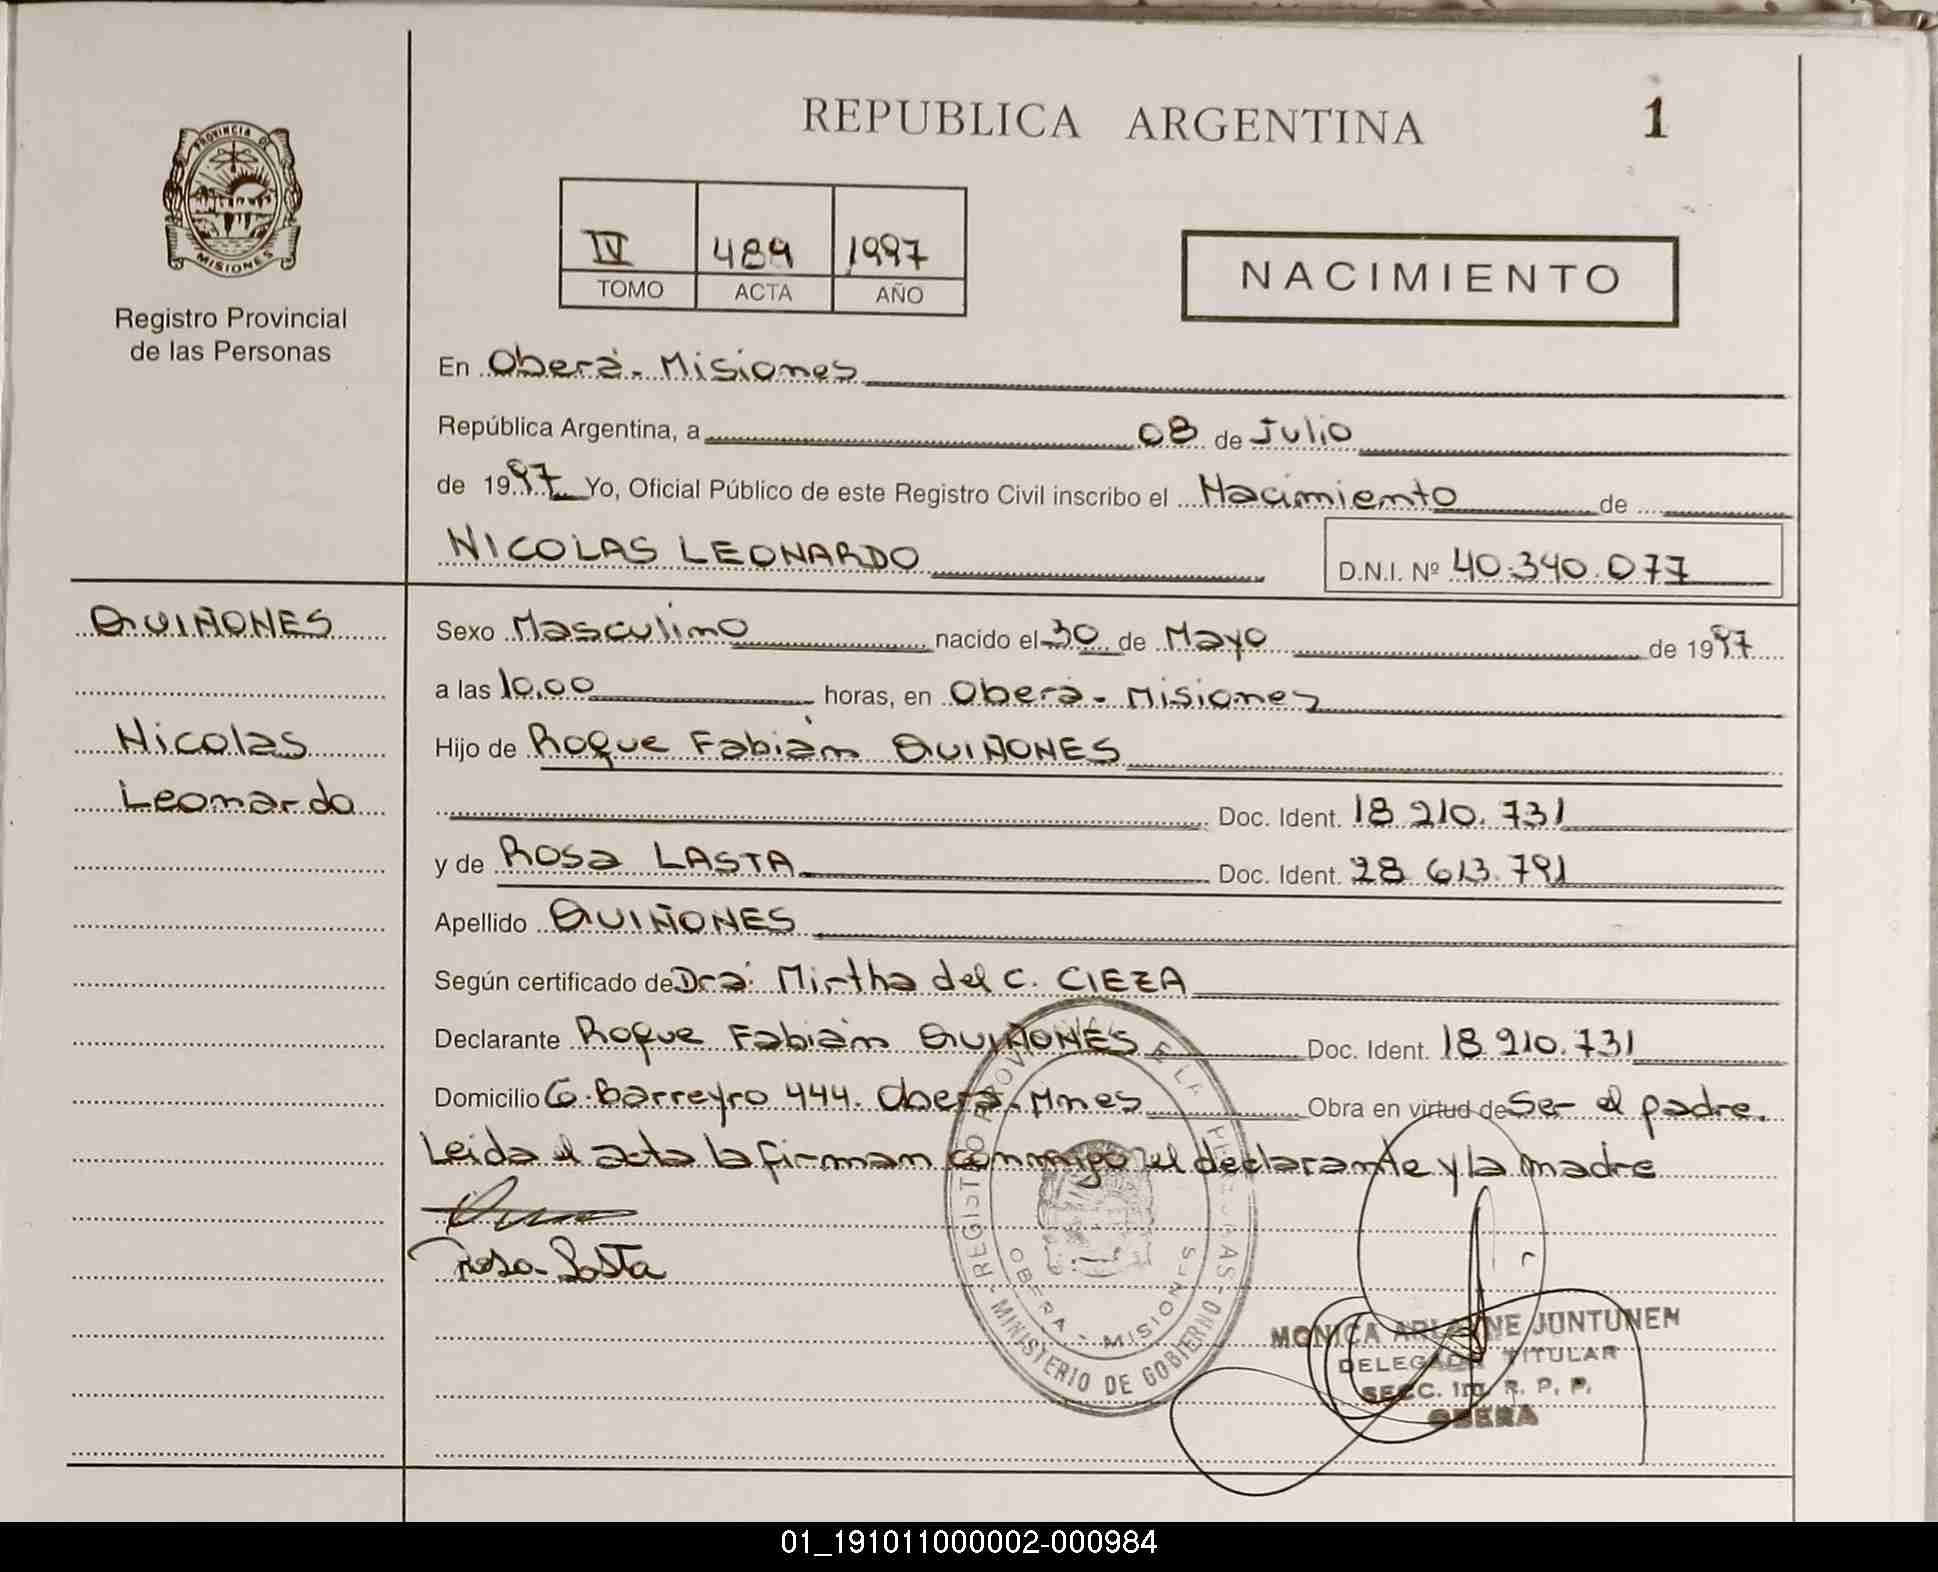 PROVINCIA DE
MISIONES
Registro Provincial
de las Personas
REPUBLICA ARGENTINA
1
IV 489 1997
TOMO ACTA AÑO
NACIMIENTO
En Oberá - Misiones
República Argentina, a 08 de Julio
de 1997 Yo, Oficial Público de este Registro Civil inscribo el Nacimiento de
NICOLAS LEONARDO D.N.I. Nº 40.340.077
QUIÑONES
Nicolas
Leonardo
Sexo Masculino nacido el 30 de Mayo de 1997
a las 10,00 horas, en Oberá - Misiones
Hijo de Roque Fabián QUIÑONES
Doc. Ident. 18 210.731
y de Rosa LASTA Doc. Ident. 28 613.791
Apellido QUIÑONES
Según certificado de Dra. Mirtha del C. CIEZA
Declarante Roque Fabián QUIÑONES Doc. Ident. 18 910.731
Domicilio G. Barreyro 444. Oberá. Mnes Obra en virtud de Ser el padre.
Leida el acta la firman conmigo el declarante y la madre
Rosa Lasta
REGISTRO PROVINCIAL DE LAS PERSONAS
MINISTERIO DE GOBIERNO
OBERA - MISIONES
MONICA ARLENE JUNTUNEN
DELEGADA TITULAR
SECC. R. P. P.
OBERA
01_191011000002-000984